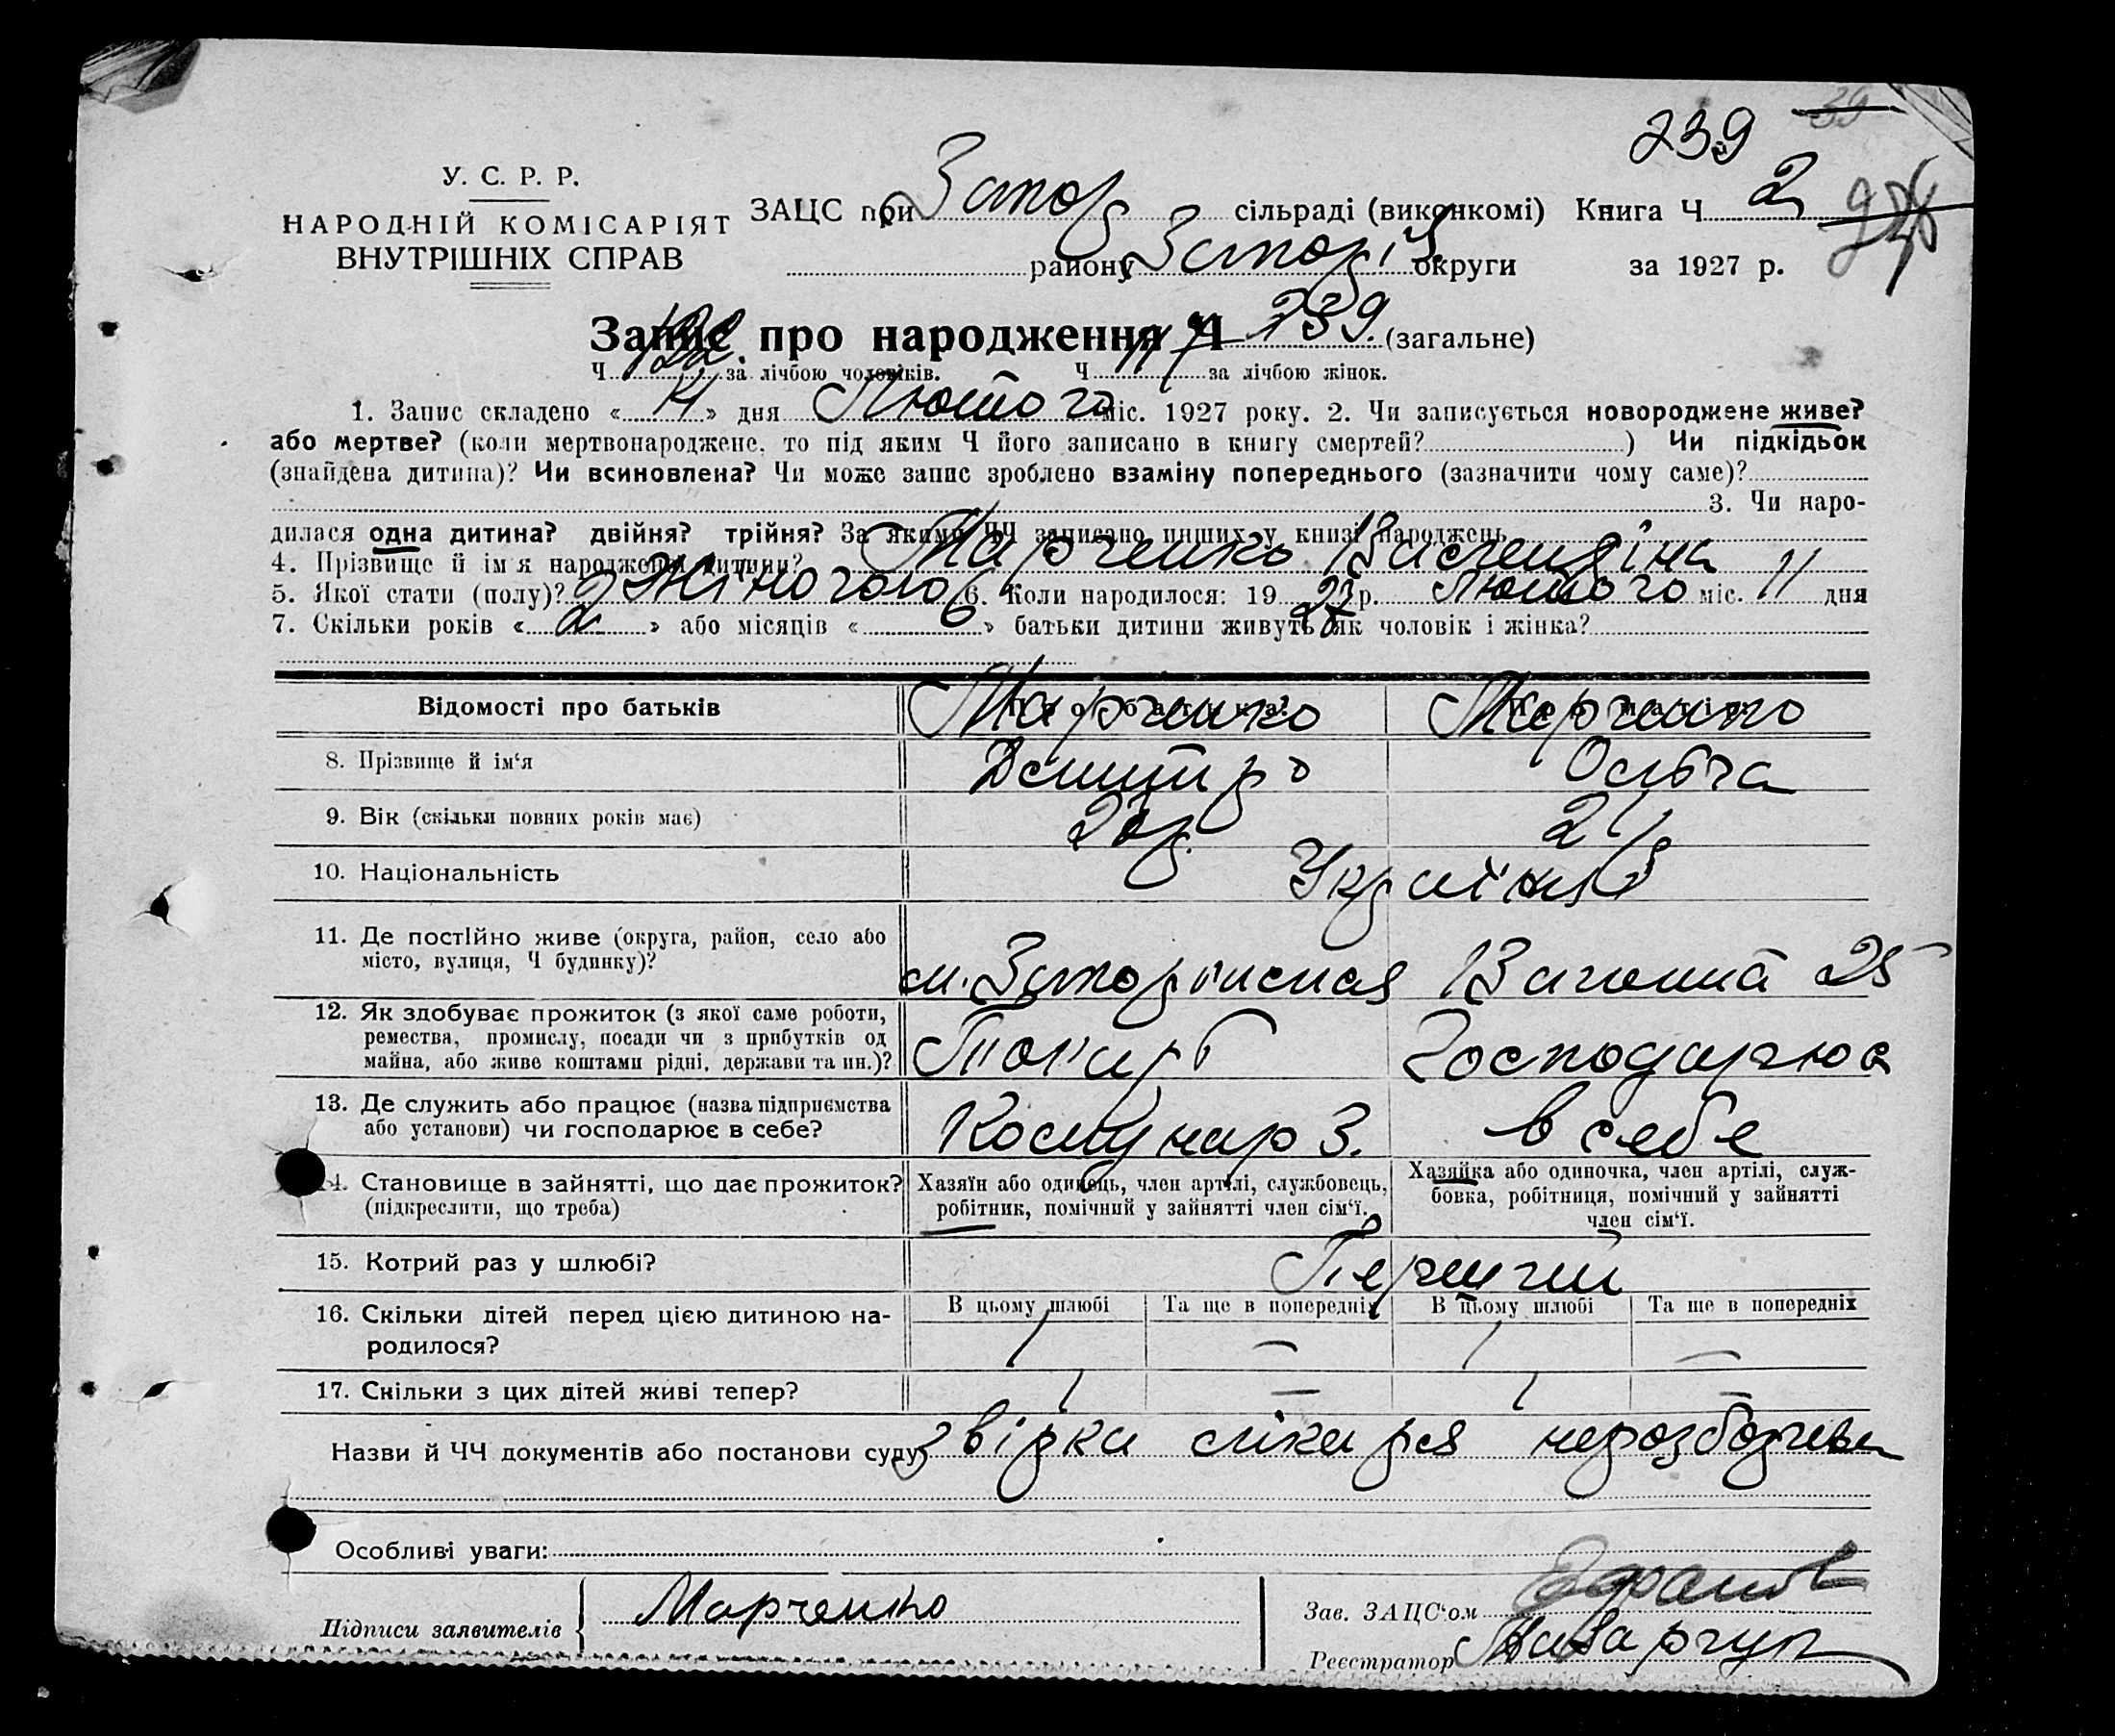 239 39
У. С. Р. Р.
НАРОДНІЙ КОМІСАРІЯТ
ВНУТРІШНІХ СПРАВ
ЗАЦС при Запор сільраді (виконкомі) Книга Ч 2
району Запоріз округи за 1927 р.
Запис про народження Ч 239. (загальне)
Ч 122 за лічбою чоловіків. Ч 117 за лічбою жінок.
1. Запис складено « 14 » дня Лютого міс. 1927 року. 2. Чи записується новороджене живе?
або мертве? (коли мертвонароджене, то під яким Ч його записано в книгу смертей? ) Чи підкідьок
(знайдена дитина)? Чи всиновлена? Чи може запис зроблено взаміну попереднього (зазначити чому саме)?
3. Чи наро-
дилася одна дитина? двійня? трійня? За якими ЧЧ записано инших у книзі народжень
4. Прізвище й ім'я народженої дитини? Марченко
5. Якої стати (полу)? Жіночою 6. Коли народилося: 19 27 р. Лютого міс. 11 дня
7. Скільки років « 2 » або місяців « 6 » батьки дитини живуть як чоловік і жінка?
Відомості про батьків Марченко Марченко
8. Прізвище й ім'я Дмитро Ольга
9. Вік (скільки повних років має)
10. Національність
11. Де постійно живе (округа, район, село або
місто, вулиця, Ч будинку)? 25
12. Як здобуває прожиток (з якої саме роботи,
ремества, промислу, посади чи з прибутків од
майна, або живе коштами рідні, держави та ин.)? Токарь Господарює
13. Де служить або працює (назва підприємства
або установи) чи господарює в себе? Комунар З. в себе
14. Становище в зайнятті, що дає прожиток?
(підкреслити, що треба)
Хазяїн або одинець, член артілі, службовець,
робітник, помічний у зайнятті член сім'ї.
Хазяйка або одиночка, член артілі, служ-
бовка, робітниця, помічний у зайнятті
член сім'ї.
15. Котрий раз у шлюбі?
В цьому шлюбі Та ще в попередніх В цьому шлюбі Та ще в попередніх
16. Скільки дітей перед цією дитиною на-
родилося? 1 — 1 —
17. Скільки з цих дітей живі тепер? 1 — 1 —
Назви й ЧЧ документів або постанови суду звідка лікаря нерозборчева
Особливі уваги:
Підписи заявителів Марченко
Зав. ЗАЦС'ом
Реєстратор